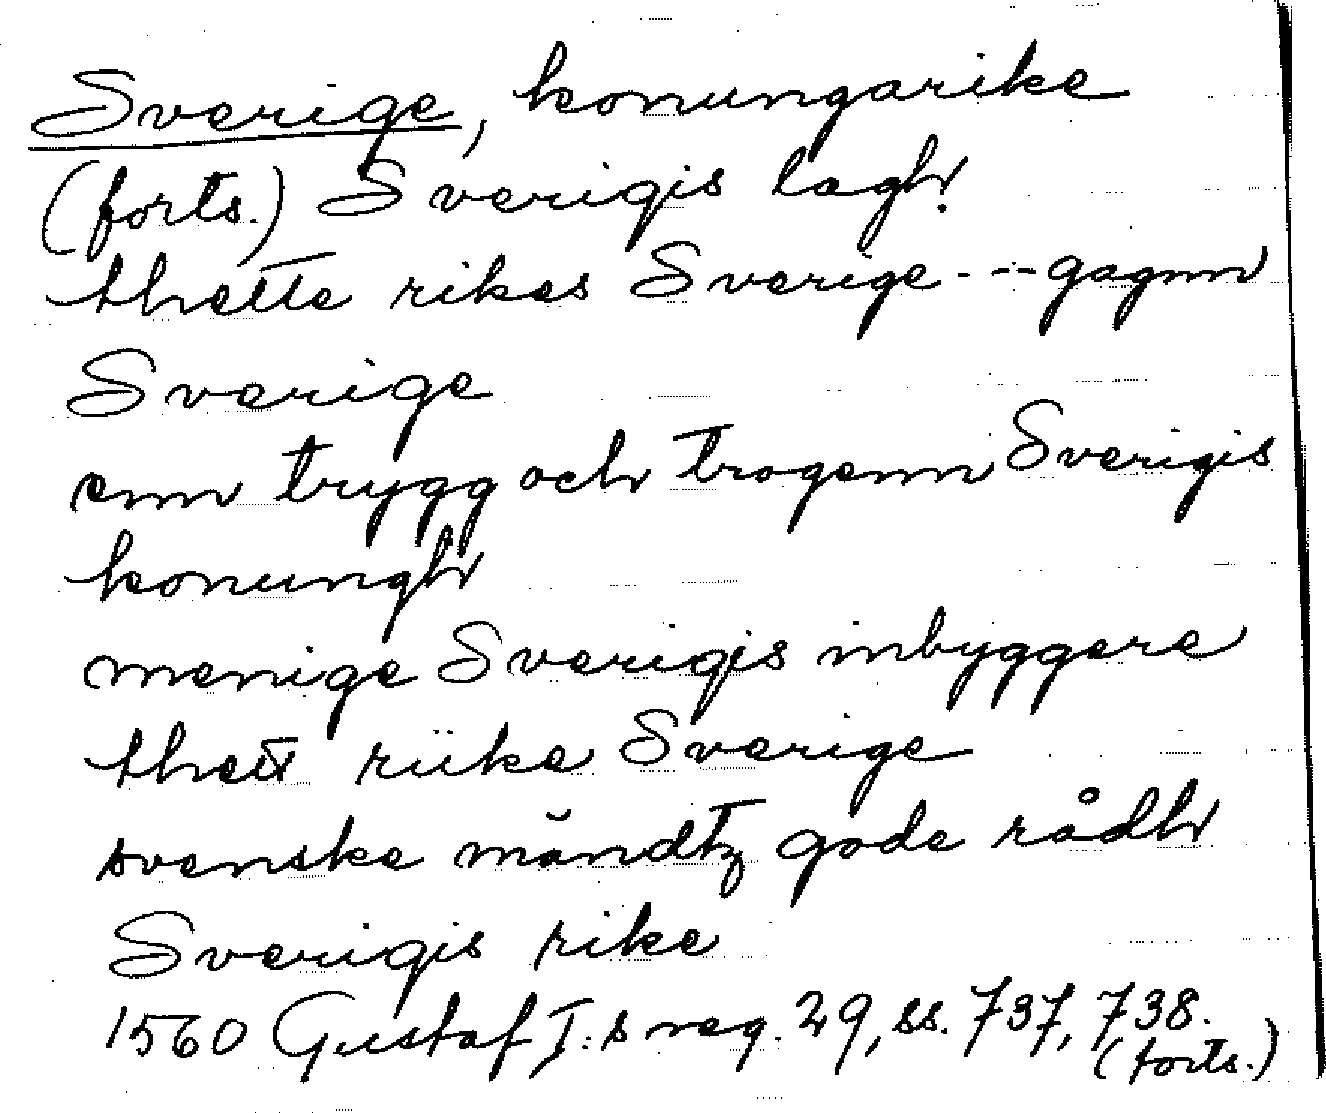 Sverige, konungarike
(forts.) Sverigis lagh!
thette rikes Sverige---gagnn
Sverige
enn trygg och trogenn Sverigis
konungh
menige Sverigis inbyggere
thett riike Sverige
svenske mändtz gode rådh
Sverigis rike
1560 Gustaf I:s reg. 29, ss. 737, 738.
(forts.)